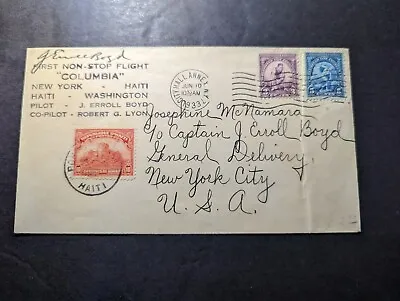 J. Erroll Boyd
FIRST NON-STOP FLIGHT
"COLUMBIA"
NEW YORK - HAITI
HAITI - WASHINGTON
PILOT - J. ERROLL BOYD
CO-PILOT - ROBERT G. LYON
CITY HALL ANNEX, N.Y.
JUN 10
1933
Josephine McNamara
c/o Captain J. Erroll Boyd
General Delivery
New York City
U. S. A.
HAITI